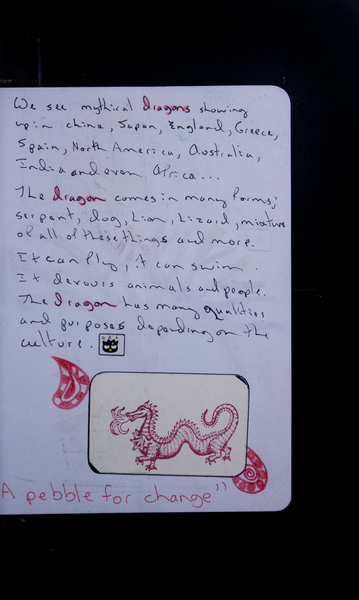 We see mythical dragons showing
up in china, Japan, England, Greece,
Spain, North America, Australia,
India and even Africa...
The dragon comes in many forms;
serpent, dog, Lion, Lizard, mixture
of all of these things and more.
It can fly, it can swim.
It devours animals and people.
The dragon has many qualities
and purposes depending on the
culture.
A pebble for change"